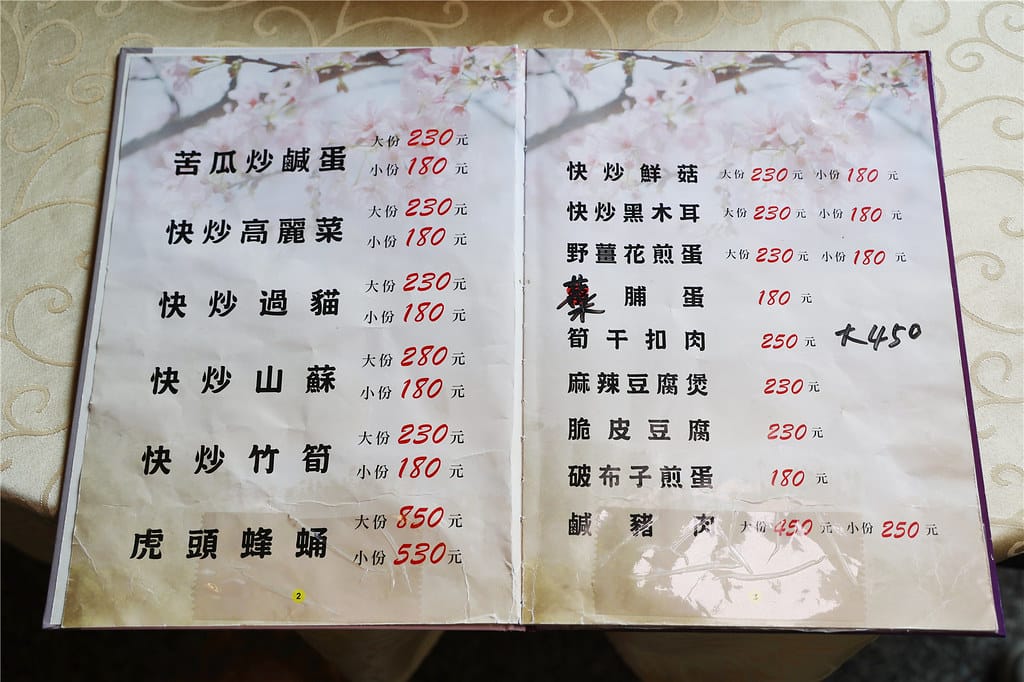 苦瓜炒鹹蛋 大份 230元
小份 180 元
快炒高麗菜 大份 230元
小份 180 元
快炒過貓 大份 230元
小份 180 元
快炒山蘇 大份 280元
小份 180 元
快炒竹筍 大份 230元
小份 180 元
虎頭蜂蛹 大份 850元
小份 530元
2
快炒鮮菇 大份 230 元 小份 180 元
快炒黑木耳 大份 230 元 小份 180 元
野薑花煎蛋 大份 230元 小份 180 元
脯蛋 180 元
筍干扣肉 250 元 大450
麻辣豆腐煲 230元
脆皮豆腐 230元
破布子煎蛋 180 元
鹹豬肉 大份 450 元 小份 250 元
3